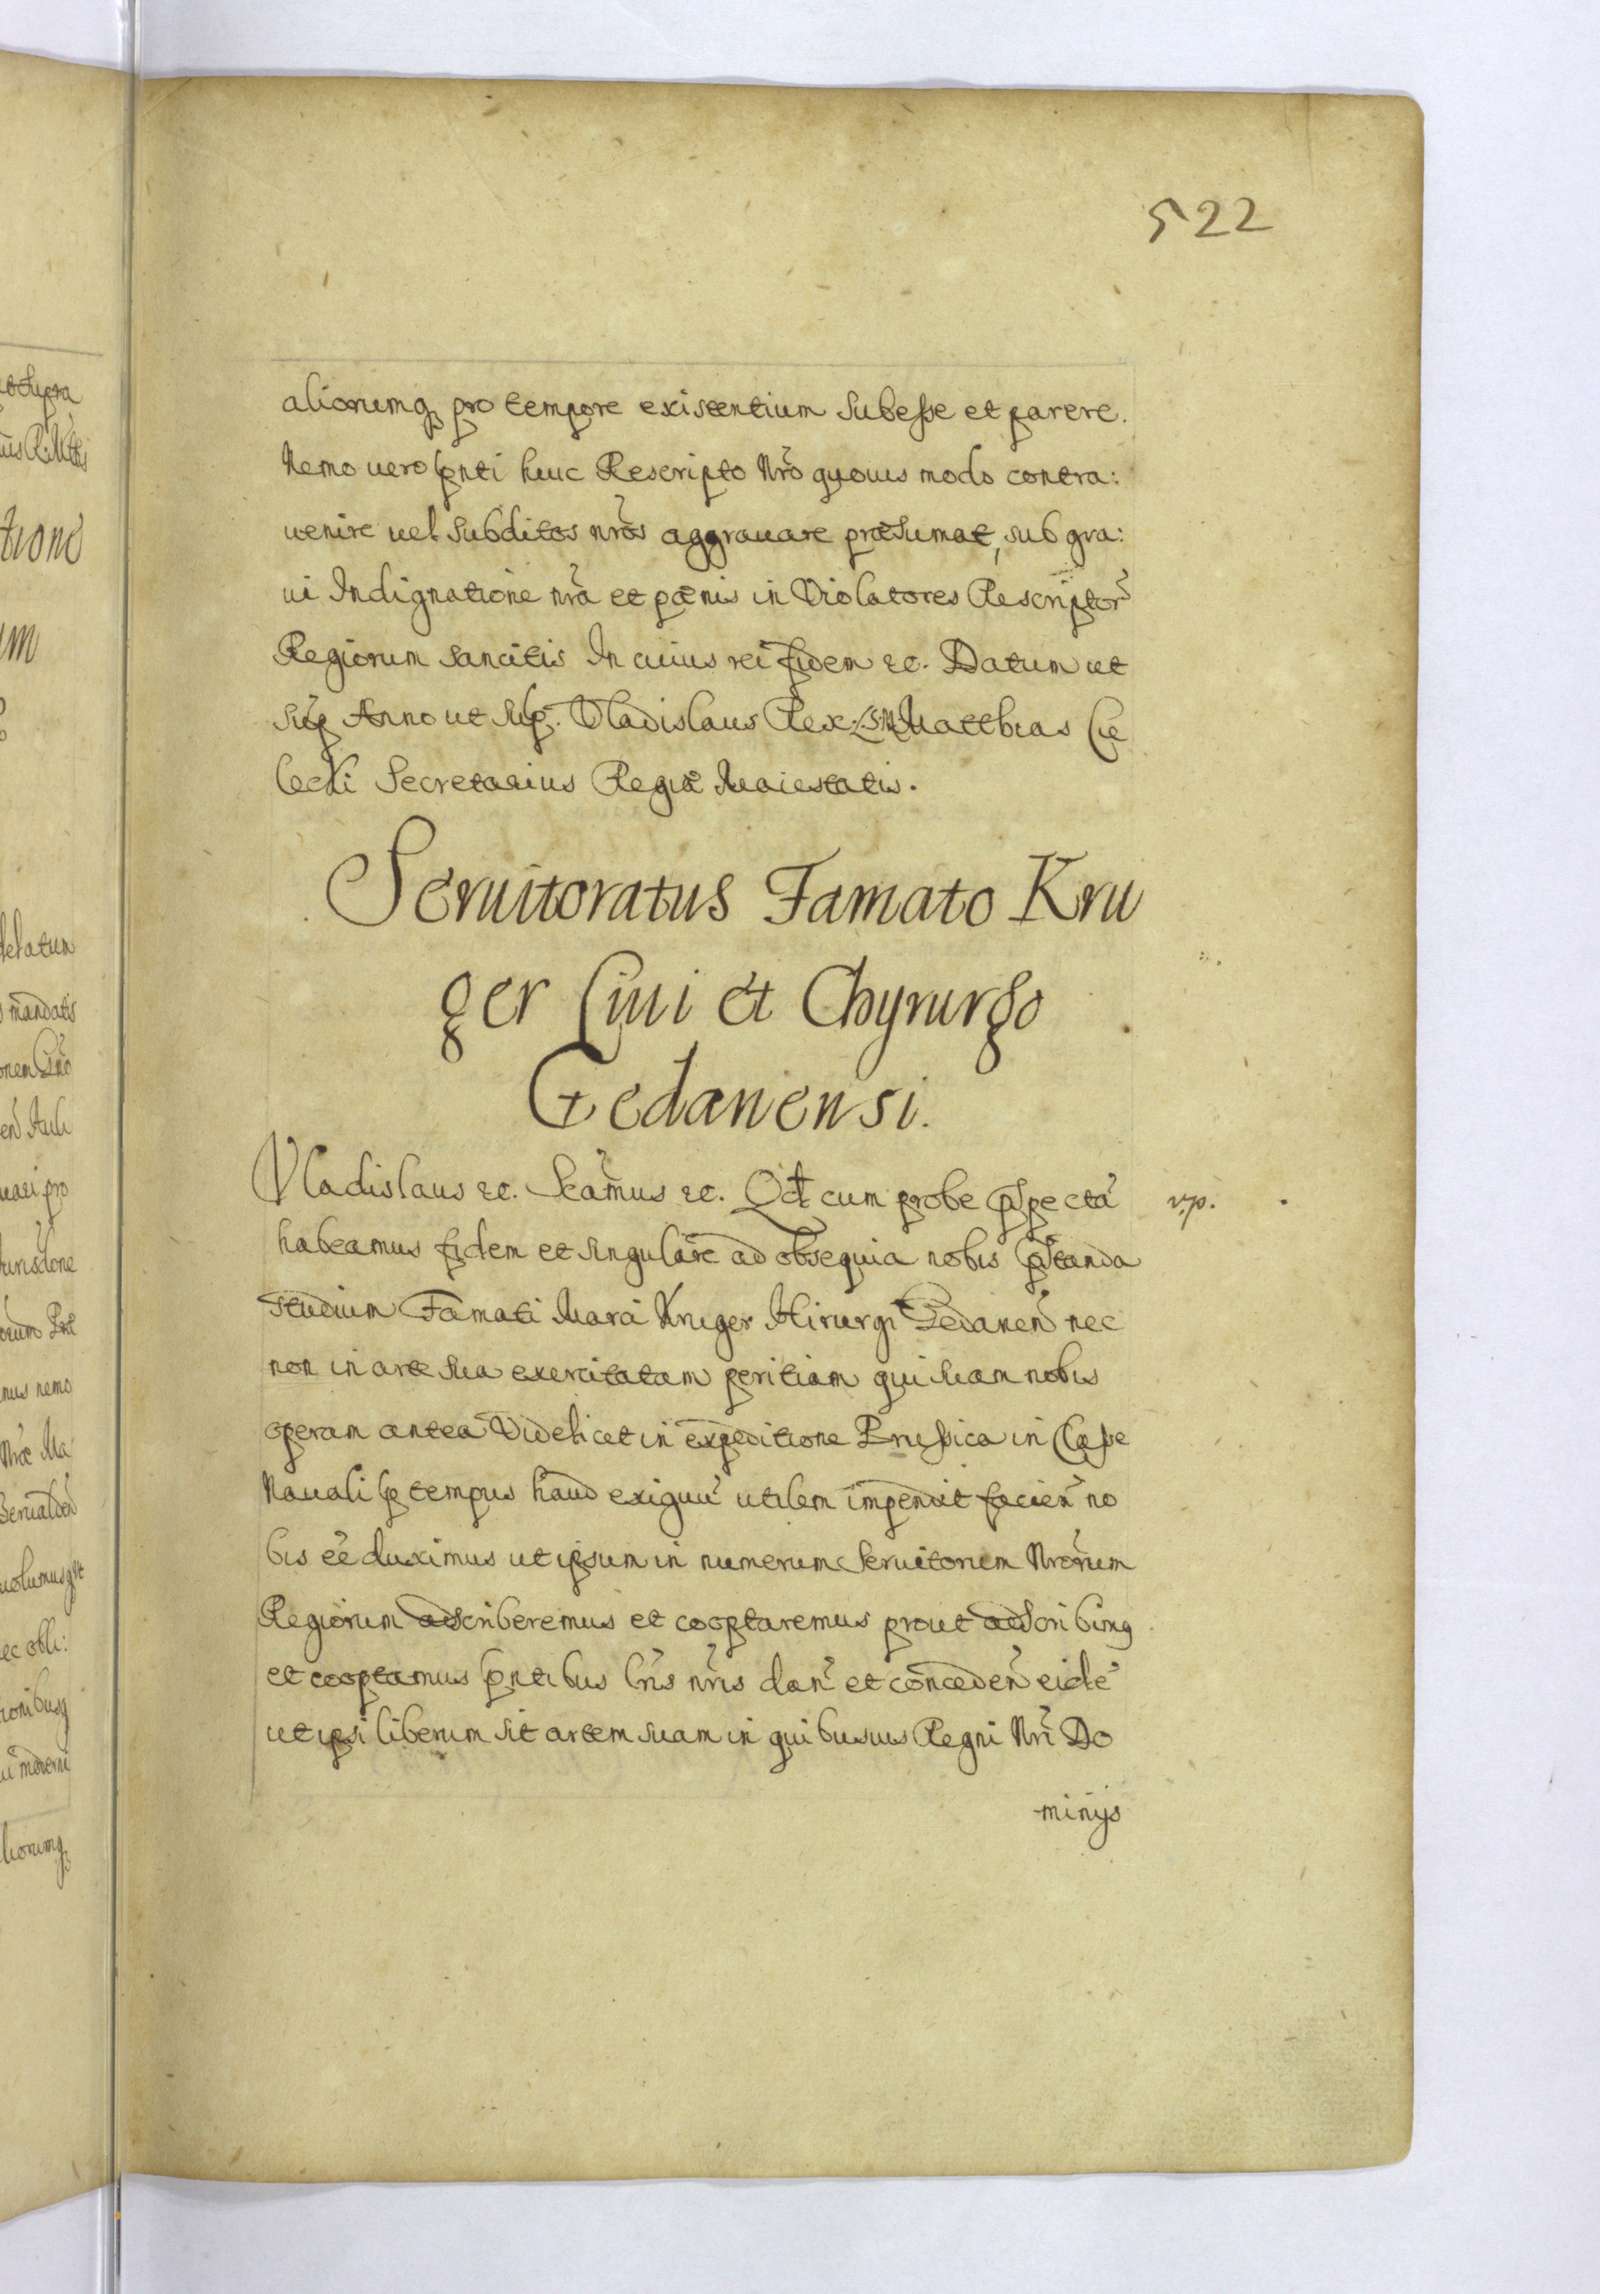 522
aliorumq pro tempore existentium subesse et parere.
Nemo uero pnti huic Rescripto Nrõ quouis modo contra:
uenire uel subditos nrõs aggrauare præsumat, sub gra:
ui Indignatione nrã et pœnis in Violatores Rescriptor̃
Regiorum sancitis In cuius rei fidem &c. Datum ut
sup̃ Anno ut sup̃. Vladislaus Rex. Matthias Cie
lecki Secretarius Regiæ Maiestatis.
Seruitoratus Famato Kru
ger Ciui et Chyrurgo
Gedanensi.
Vladislaus &c. Scãmus &c. Qd cum probe pspectã
v.p.
habeamus fidem et singularẽ ad obsequia nobis pstanda
studium Famati Marci Kruger Hirurgi Gedanen̄ nec
non in arte sua exercitatam peritiam qui suam nobis
operam antea Videlicet in expeditione Prussica in Classe
Nauali p tempus haud exiguũ utilem impendit facien̄ no
bis eẽ duximus ut ipsum in numerum Seruitorum Nrõrum
Regiorum adscriberemus et cooptaremus prout adscribimq
et cooptamus pntibus lrĩs nrĩs dan̄ et conceden̄ eidẽ
ut ipsi liberum sit artem suam in quibusuis Regni Nrĩ Do
minys